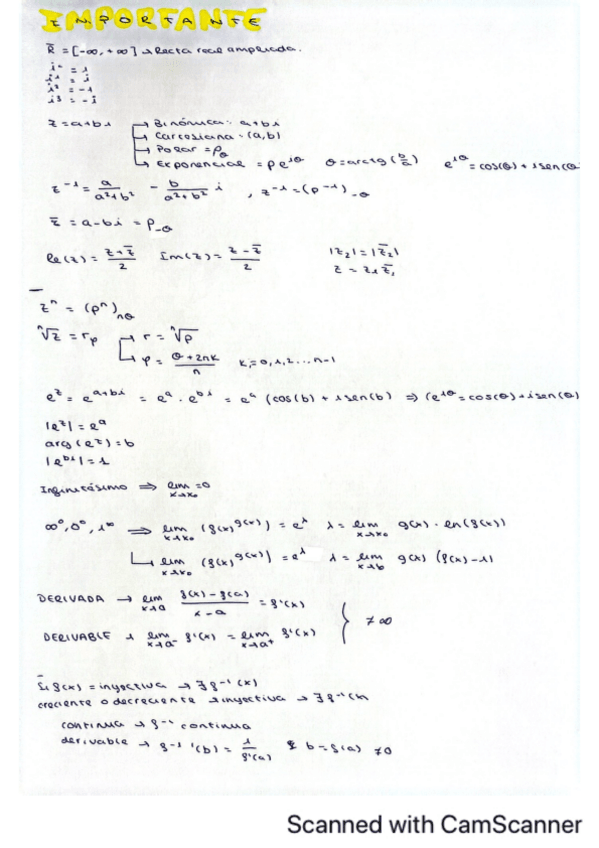 IMPORTANTE
R̄ = [-∞, +∞] → Recta real ampliada.
i⁰ = 1
i¹ = i
i² = -1
i³ = -i
z = a+bi → Binómica: a+bi
→ Cartesiana: (a,b)
→ Polar = ρ_θ
→ Exponencial = ρ e^{iθ} θ = arctg(b/a) e^{iθ} = cos(θ) + i sen(θ
z⁻¹ = a/(a²+b²) - b/(a²+b²) i , z⁻¹ = (ρ⁻¹)_{-θ}
z̄ = a-bi = ρ_{-θ}
Re(z) = (z+z̄)/2 Im(z) = (z-z̄)/2 |z₂| = |z̄₂|
z = z₁ z̄₁
zⁿ = (ρⁿ)_{nθ}
ⁿ√z = r_φ → r = ⁿ√ρ
→ φ = (θ+2πk)/n K = 0, 1, 2 ... n-1
e^z = e^{a+bi} = e^a · e^{bi} = e^a (cos(b) + i sen(b) ⇒ (e^{iθ} = cos(θ) + i sen(θ)
|e^z| = e^a
arg(e^z) = b
|e^{bi}| = 1
Infinitésimo ⇒ lim_{x→x₀} = 0
∞⁰, 0⁰, 1^∞ ⇒ lim_{x→x₀} (f(x)^{g(x)}) = e^λ λ = lim_{x→x₀} g(x) · ln(f(x))
→ lim_{x→x₀} (f(x)^{g(x)}) = e^λ λ = lim_{x→b} g(x) (f(x)-1)
DERIVADA → lim_{x→a} (f(x)-f(a))/(x-a) = f'(x)
DERIVABLE → lim_{x→a⁻} f'(x) = lim_{x→a⁺} f'(x) } ≠ ∞
Si f(x) = inyectiva → ∃ f⁻¹(x)
creciente o decreciente → inyectiva → ∃ f⁻¹(x
continua → f⁻¹ continua
derivable → f⁻¹ '(b) = 1/f'(a) & b = f(a) ≠ 0
Scanned with CamScanner